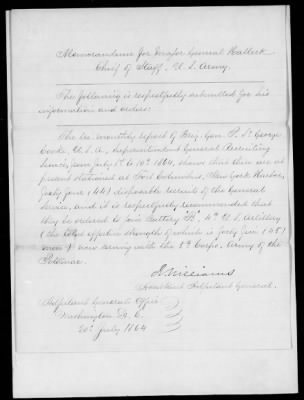 Memorandum for Major General Halleck
Chief of Staff. U.S. Army.
The following is respectfully submitted for his
information and orders:
The tri-monthly report of Brig. Gen. P. St. George
Cooke U.S.A., Superintendent General Recruiting
Service, from July 1st to 10th 1864, shows that there are at
present stationed at Fort Columbus, New York Harbor,
forty four (44) disposable recruits of the General
Service, and it is respectfully recommended that
they be ordered to join Battery 4th U.S. Artillery
(the total effective strength of which is forty five (45)
men) now serving with the Corps, Army of the
Potomac.
Williams
Assistant Adjutant General.
Adjutant General's Office
Washington D.C.
20th July 1864